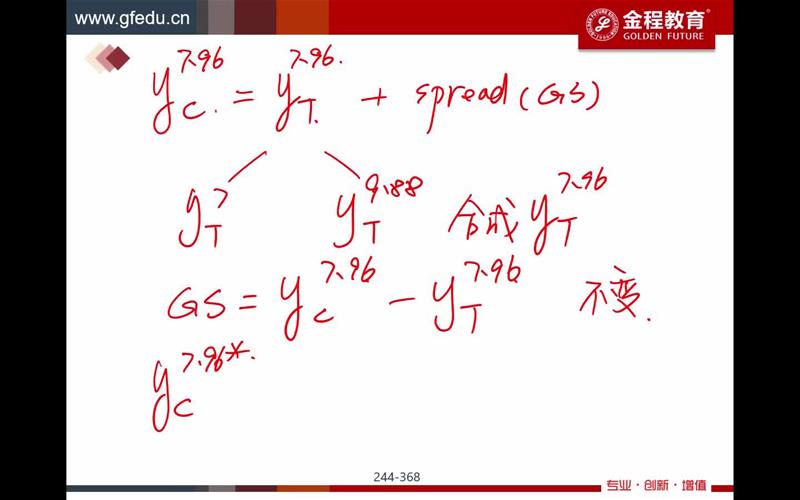 www.gfedu.cn
金程教育
GOLDEN FUTURE
y_C^7.96 = y_T^7.96 + spread (GS)
y_T^7 y_T^9.88 合成 y_T^7.96
GS = y_C^7.96 - y_T^7.96 不变.
y_C^7.96*
244-368
专业·创新·增值